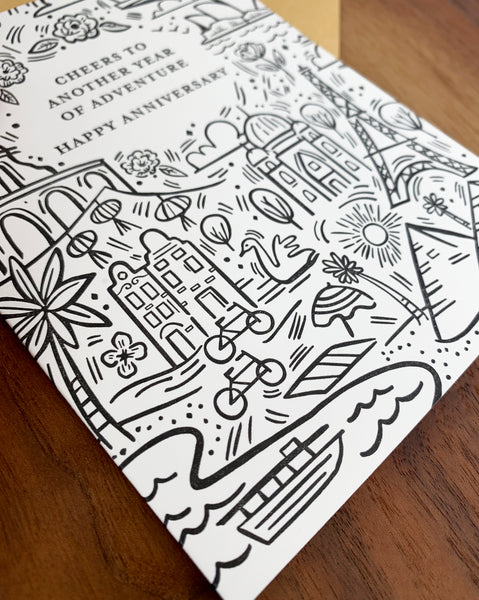 CHEERS TO
ANOTHER YEAR
OF ADVENTURE
HAPPY ANNIVERSARY